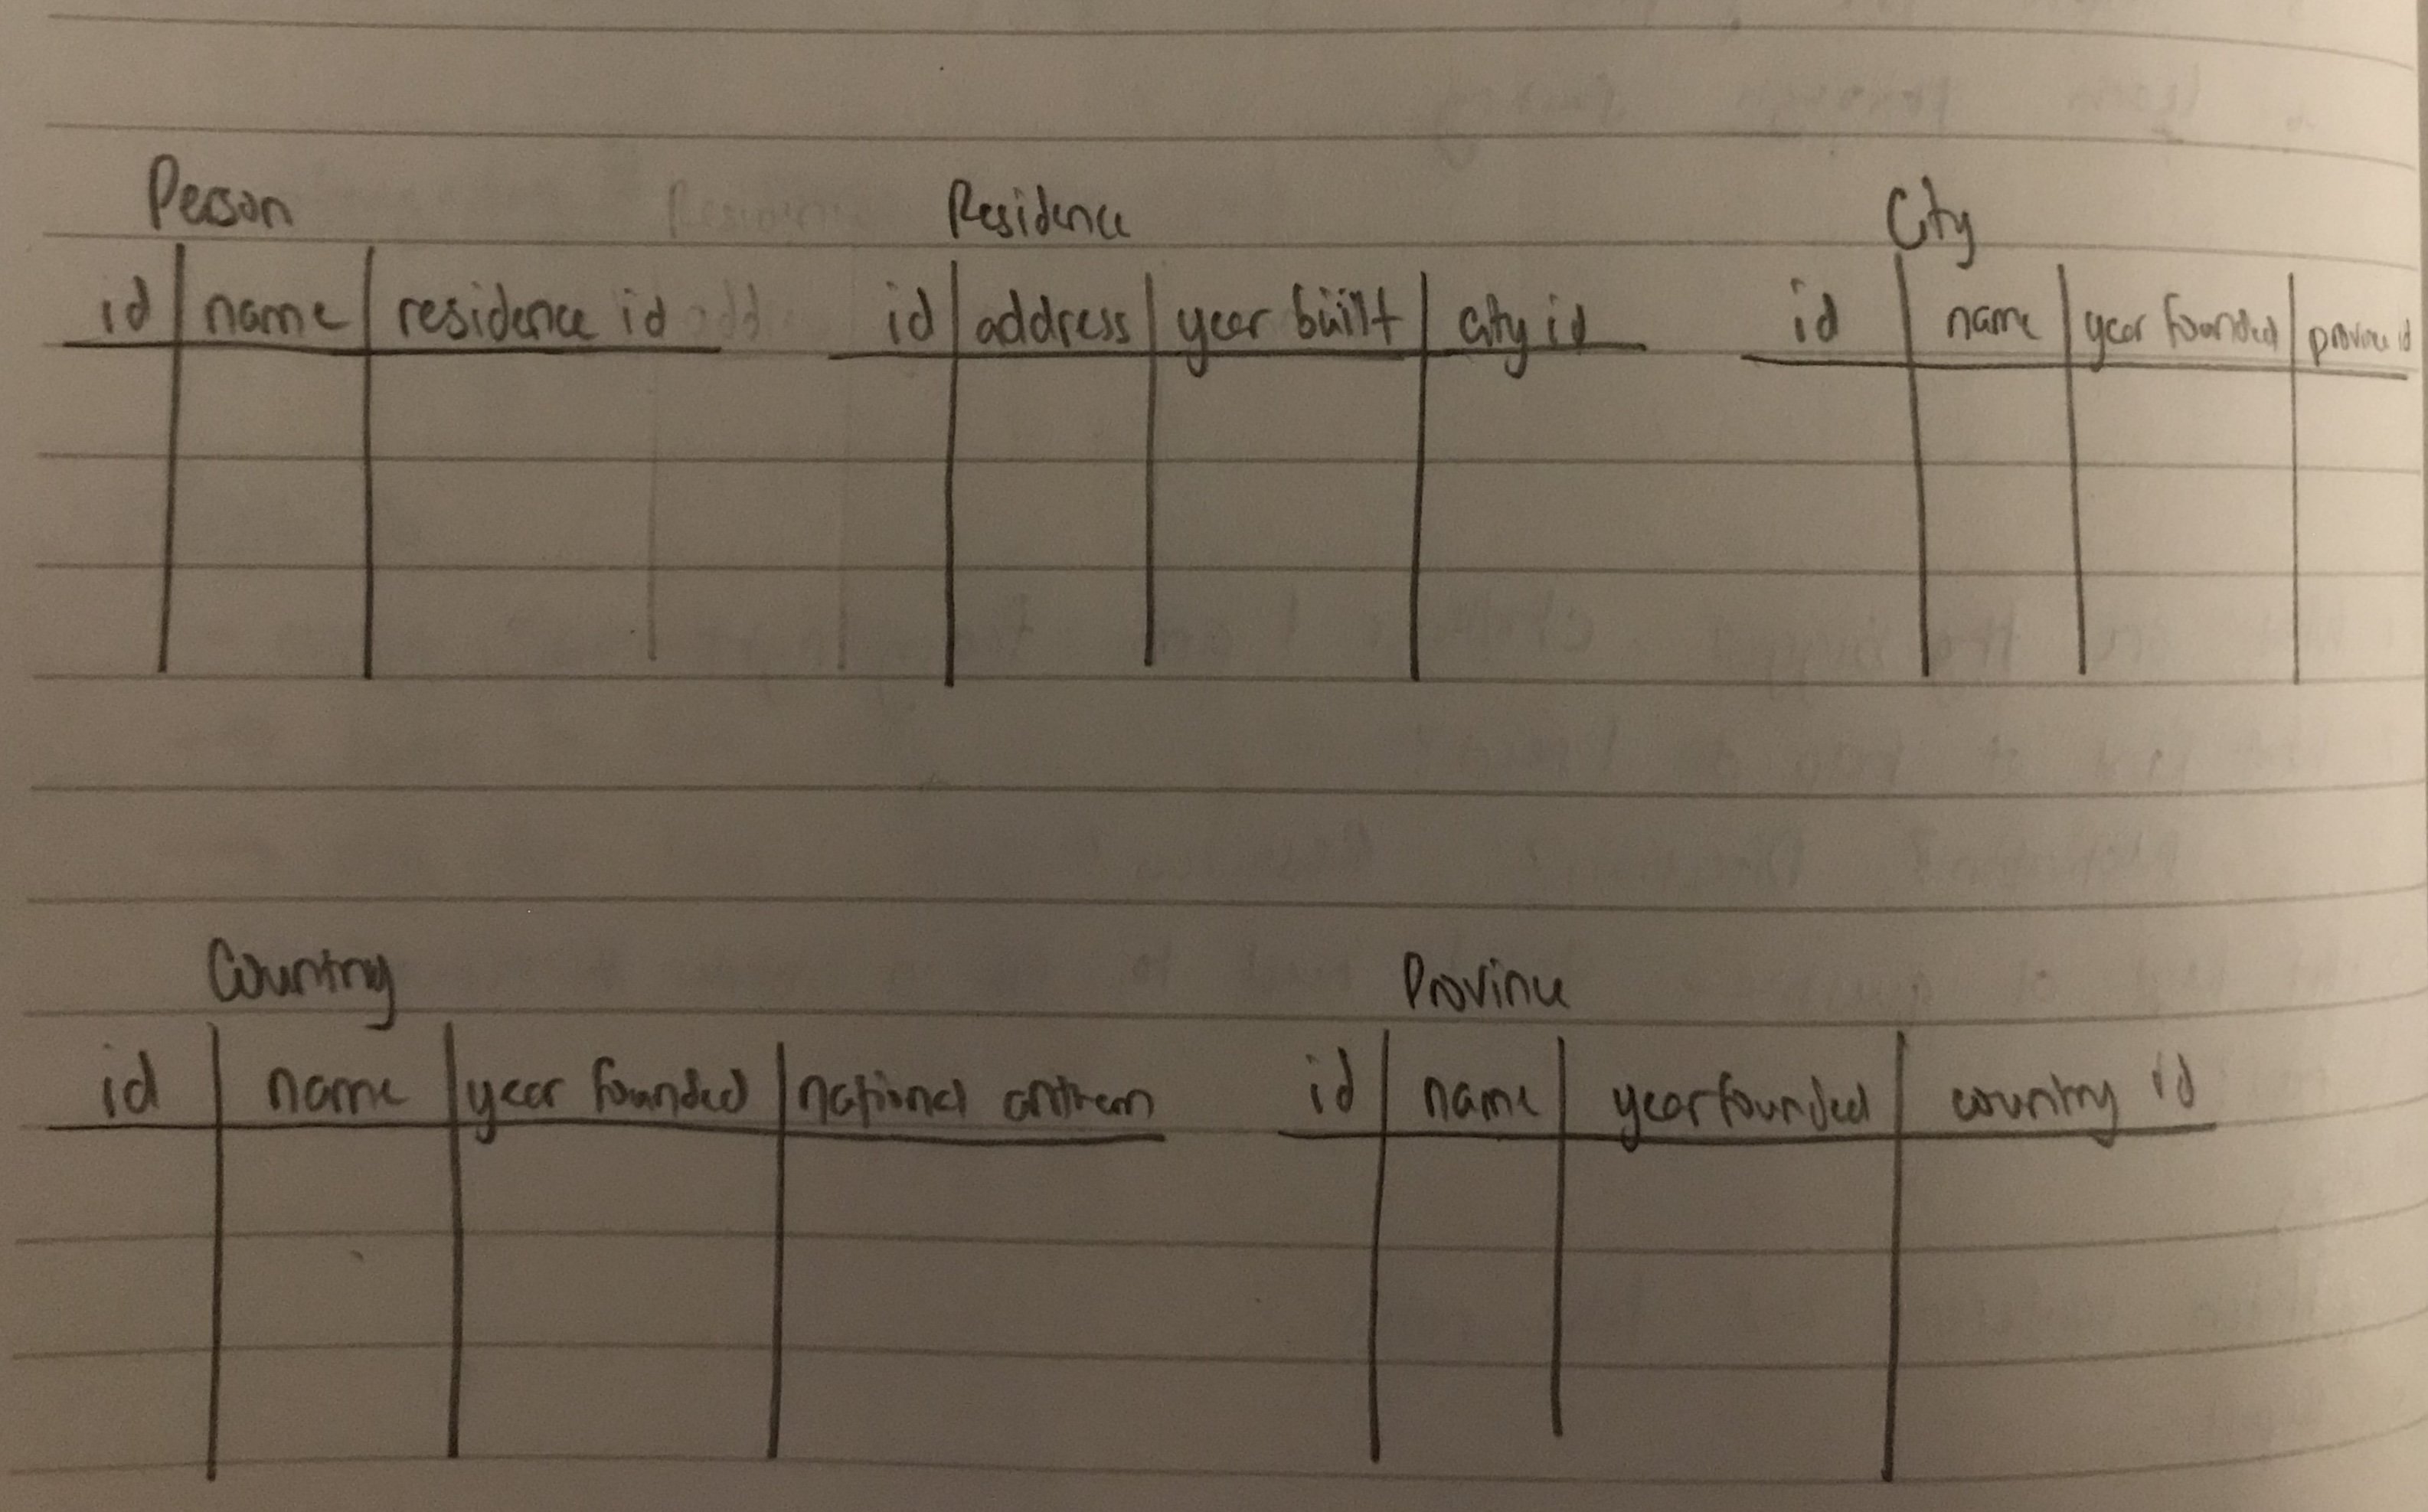 Person
id name residence id
Residence
id address year built city id
City
id name year founded province id
Country
id name year founded national anthem
Province
id name year founded country id